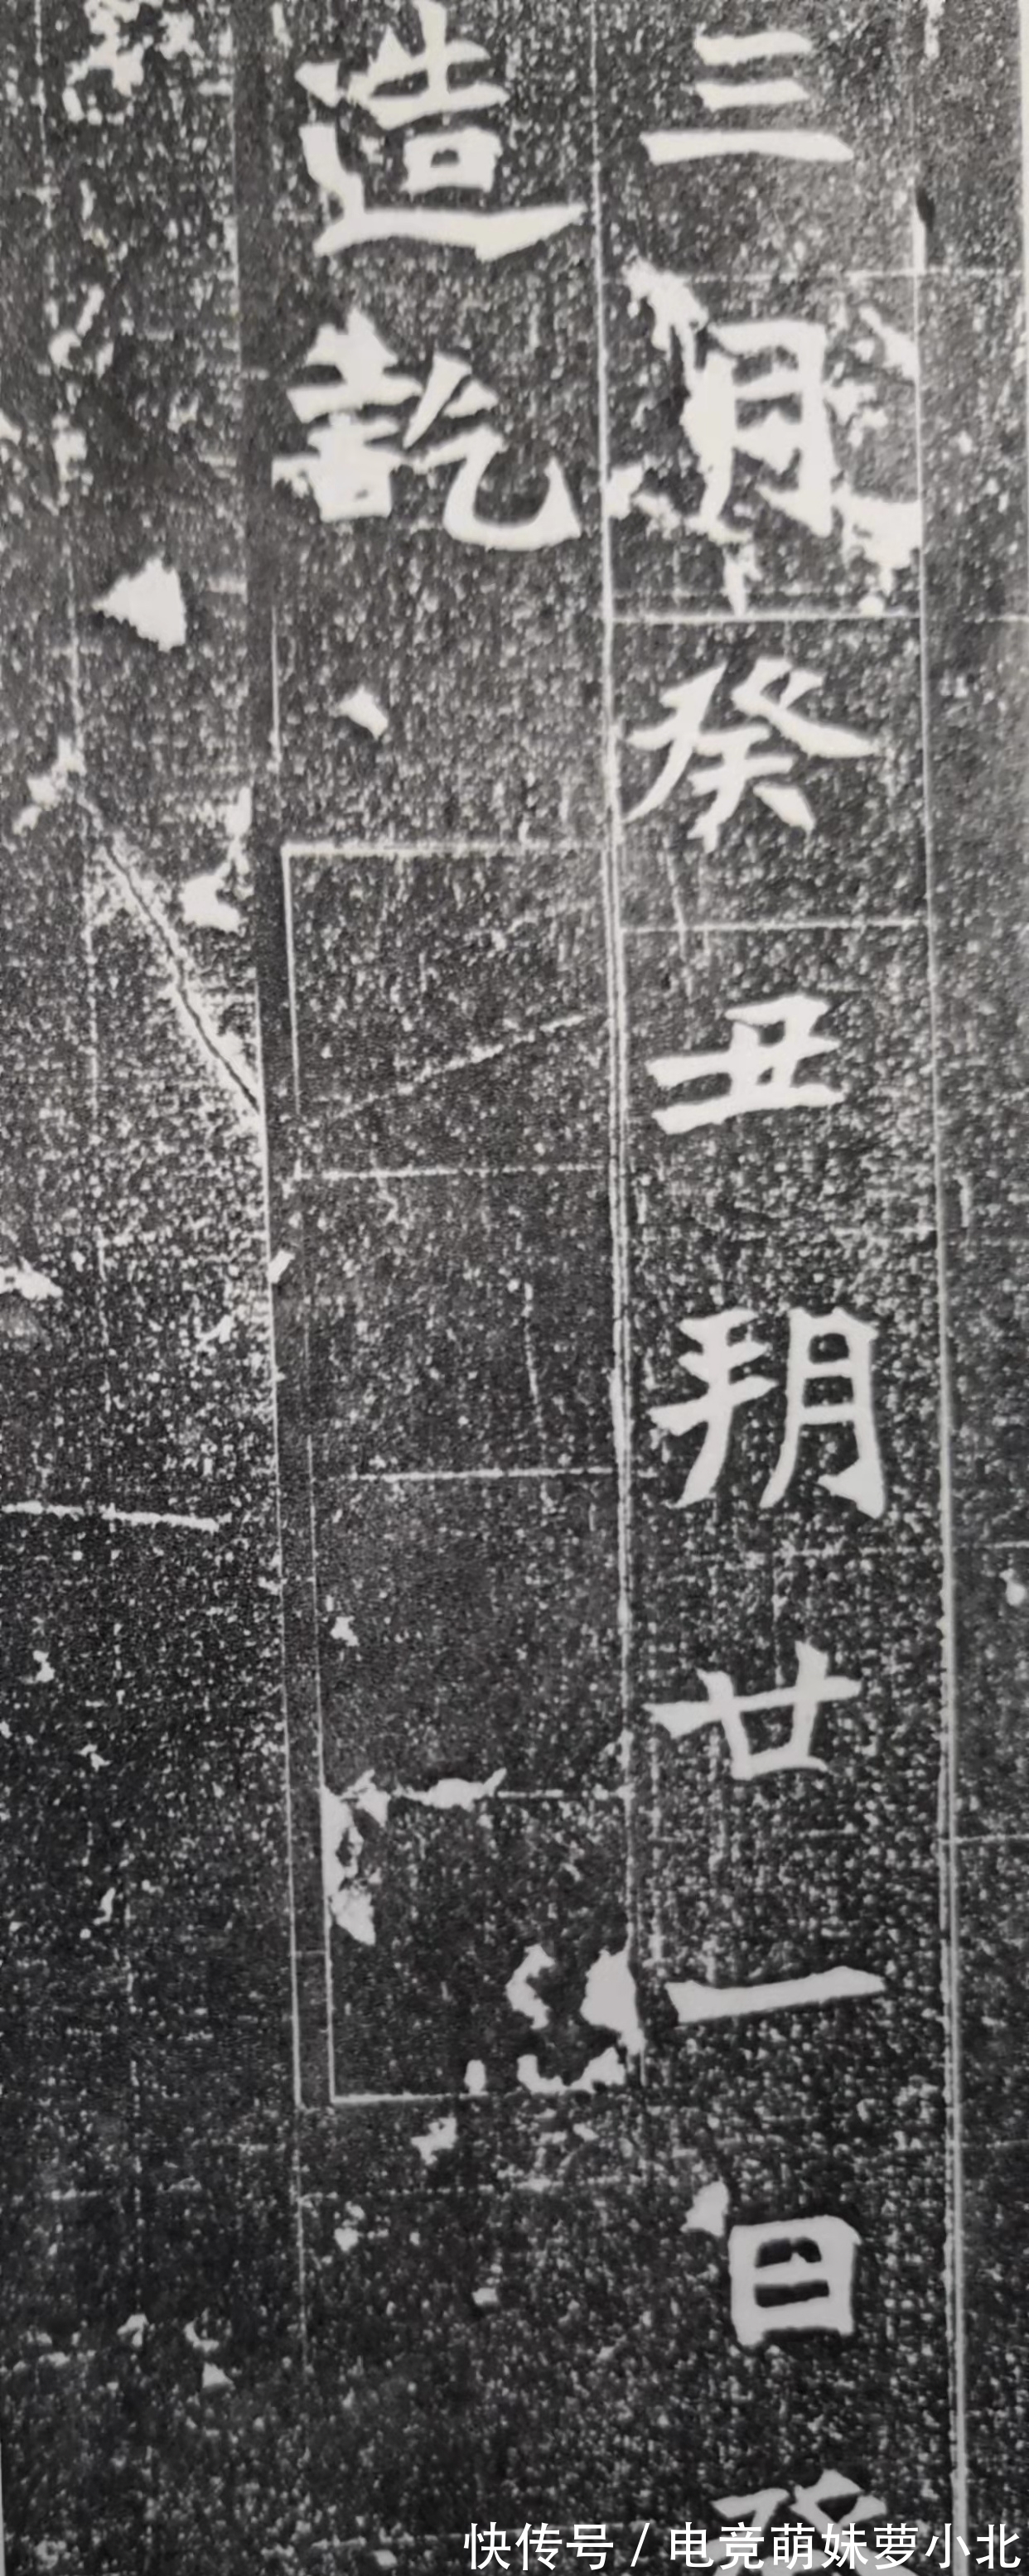 三月癸丑朔廿一日
造訖
快传号 / 电竞萌妹萝小北